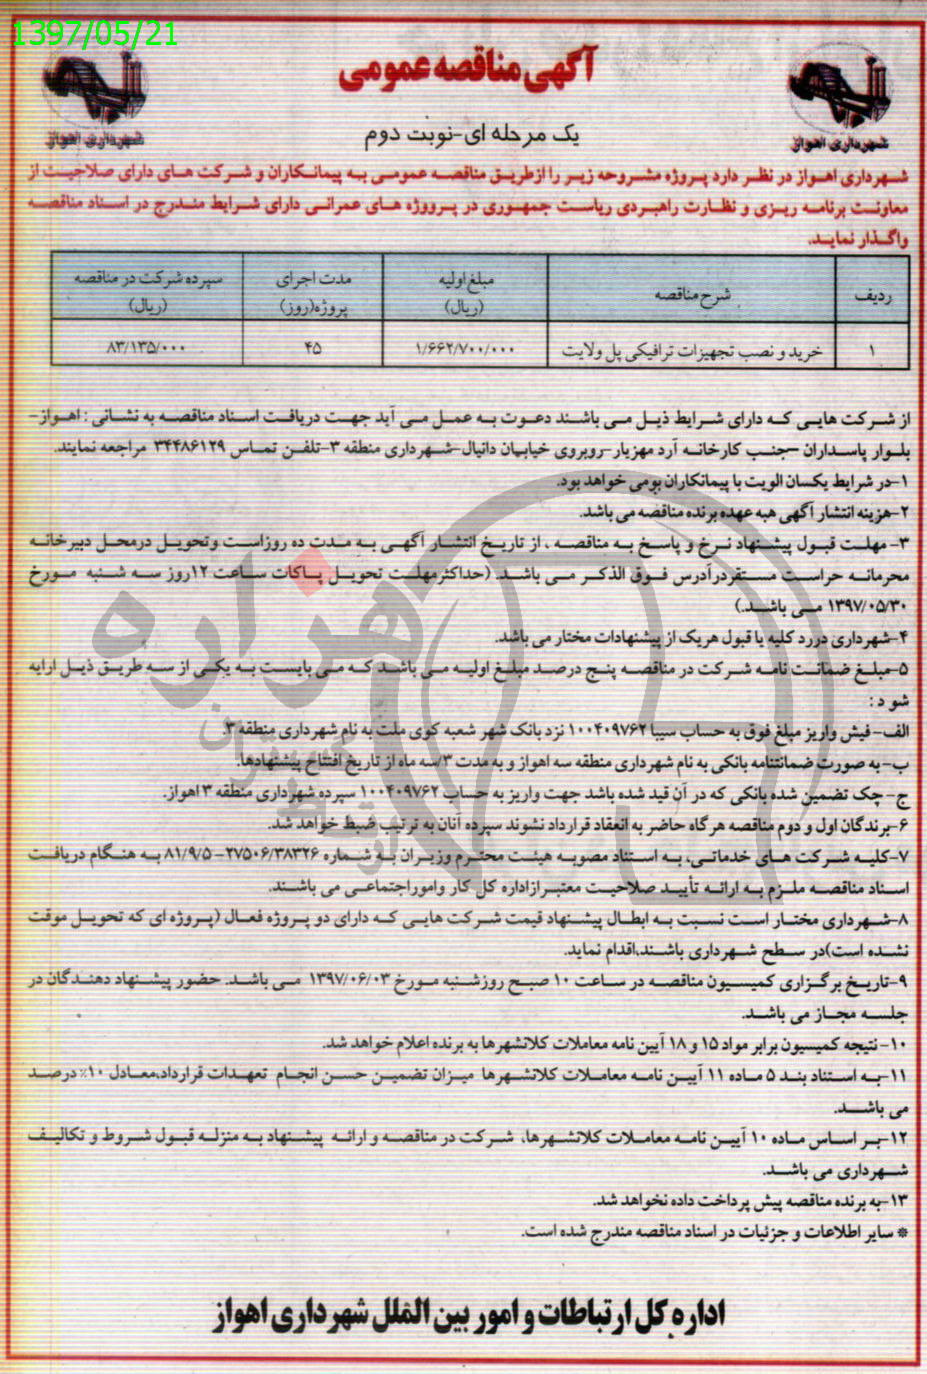 1397/05/21
آگهی مناقصه عمومی
شهرداری اهواز
شهرداری اهواز
یک مرحله ای-نوبت دوم
شهرداری اهواز در نظر دارد پروژه مشروحه زیر را ازطریق مناقصه عمومی به پیمانکاران و شرکت های دارای صلاحیت از
معاونت برنامه ریزی و نظارت راهبردی ریاست جمهوری در پرووژه های عمرانی دارای شرایط مندرج در اسناد مناقصه
واگذار نماید.
ردیف
شرح مناقصه
مبلغ اولیه
(ریال)
مدت اجرای
پروژه(روز)
سپرده شرکت در مناقصه
(ریال)
۱
خرید و نصب تجهیزات ترافیکی پل ولایت
۱/۶۶۲/۷۰۰/۰۰۰
۴۵
۸۳/۱۳۵/۰۰۰
از شرکت هایی که دارای شرایط ذیل می باشند دعوت به عمل می آید جهت دریافت اسناد مناقصه به نشانی : اهواز-
بلوار پاسداران –جنب کارخانه آرد مهزیار-روبروی خیابان دانیال-شهرداری منطقه ۳-تلفن تماس ۳۴۴۸۶۱۲۹ مراجعه نمایند.
۱-در شرایط یکسان الویت با پیمانکاران بومی خواهد بود.
۲-هزینه انتشار آگهی هبه عهده برنده مناقصه می باشد.
۳- مهلت قبول پیشنهاد نرخ و پاسخ به مناقصه ، از تاریخ انتشار آگهی به مدت ده روزاست وتحویل درمحل دبیرخانه
محرمانه حراست مستقردرآدرس فوق الذکر می باشد. (حداکثرمهلت تحویل پاکات ساعت ۱۲روز سه شنبه مورخ
۱۳۹۷/۰۵/۳۰ می باشد.)
۴-شهرداری دررد کلیه یا قبول هریک از پیشنهادات مختار می باشد.
۵-مبلغ ضمانت نامه شرکت در مناقصه پنج درصد مبلغ اولیه می باشد که می بایست به یکی از سه طریق ذیل ارایه
شو د :
الف- فیش واریز مبلغ فوق به حساب سیبا ۱۰۰۴۰۹۷۶۲ نزد بانک شهر شعبه کوی ملت به نام شهرداری منطقه ۳.
ب- به صورت ضمانتنامه بانکی به نام شهرداری منطقه سه اهواز و به مدت ۳/سه ماه از تاریخ افتتاح پیشنهادها.
ج- چک تضمین شده بانکی که در آن قید شده باشد جهت واریز به حساب ۱۰۰۴۰۹۷۶۲ سپرده شهرداری منطقه ۳ اهواز.
۶-برندگان اول و دوم مناقصه هرگاه حاضر به انعقاد قرارداد نشوند سپرده آنان به ترتیب ضبط خواهد شد.
۷-کلیه شرکت های خدماتی، به استناد مصوبه هیئت محترم وزیران به شماره ۲۷۵۰۶/۳۸۳۲۶-۸۱/۹/۵ به هنگام دریافت
اسناد مناقصه ملزم به ارائه تأیید صلاحیت معتبرازاداره کل کار واموراجتماعی می باشند.
۸-شهرداری مختار است نسبت به ابطال پیشنهاد قیمت شرکت هایی که دارای دو پروژه فعال (پروژه ای که تحویل موقت
نشده است)در سطح شهرداری باشند،اقدام نماید.
۹-تاریخ برگزاری کمیسیون مناقصه در ساعت ۱۰ صبح روزشنبه مورخ ۱۳۹۷/۰۶/۰۳ می باشد. حضور پیشنهاد دهندگان در
جلسه مجاز می باشد.
۱۰- نتیجه کمیسیون برابر مواد ۱۵ و ۱۸ آیین نامه معاملات کلانشهرها به برنده اعلام خواهد شد.
۱۱-به استناد بند ۵ ماده ۱۱ آیین نامه معاملات کلانشهرها میزان تضمین حسن انجام تعهدات قرارداد،معادل ۱۰٪ درصد
می باشد.
۱۲-بر اساس ماده ۱۰ آیین نامه معاملات کلانشهرها، شرکت در مناقصه و ارائه پیشنهاد به منزله قبول شروط و تکالیف
شهرداری می باشد.
۱۳-به برنده مناقصه پیش پرداخت داده نخواهد شد.
* سایر اطلاعات و جزئیات در اسناد مناقصه مندرج شده است.
اداره کل ارتباطات و امور بین الملل شهرداری اهواز
هزاره